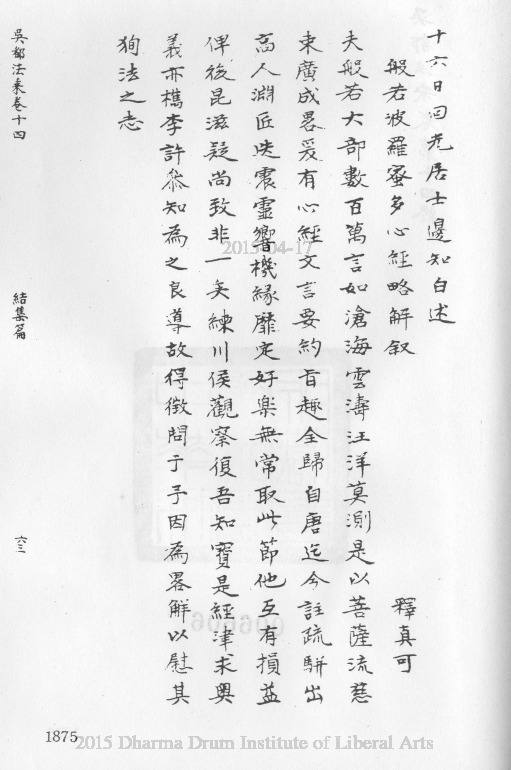 十六日回光居士邊知白述
般若波羅蜜多心經略解叙
釋真可
夫般若大部數百萬言如滄海雲濤汪洋莫測是以菩薩流慈
束廣成畧爰有心經文言要約旨趣全歸自唐迄今註疏駢出
高人淵匠迭震靈響機緣靡定好樂無常取此節他互有損益
俾後昆滋疑尚致非一矣練川侯觀察復吾知寶是經津求奧
義亦檇李許叅知為之良導故得徵問于予因為畧解以慰其
狥法之志
吳都法乘卷十四
結集篇
六三
1875
2015-04-17
006606
2015 Dharma Drum Institute of Liberal Arts